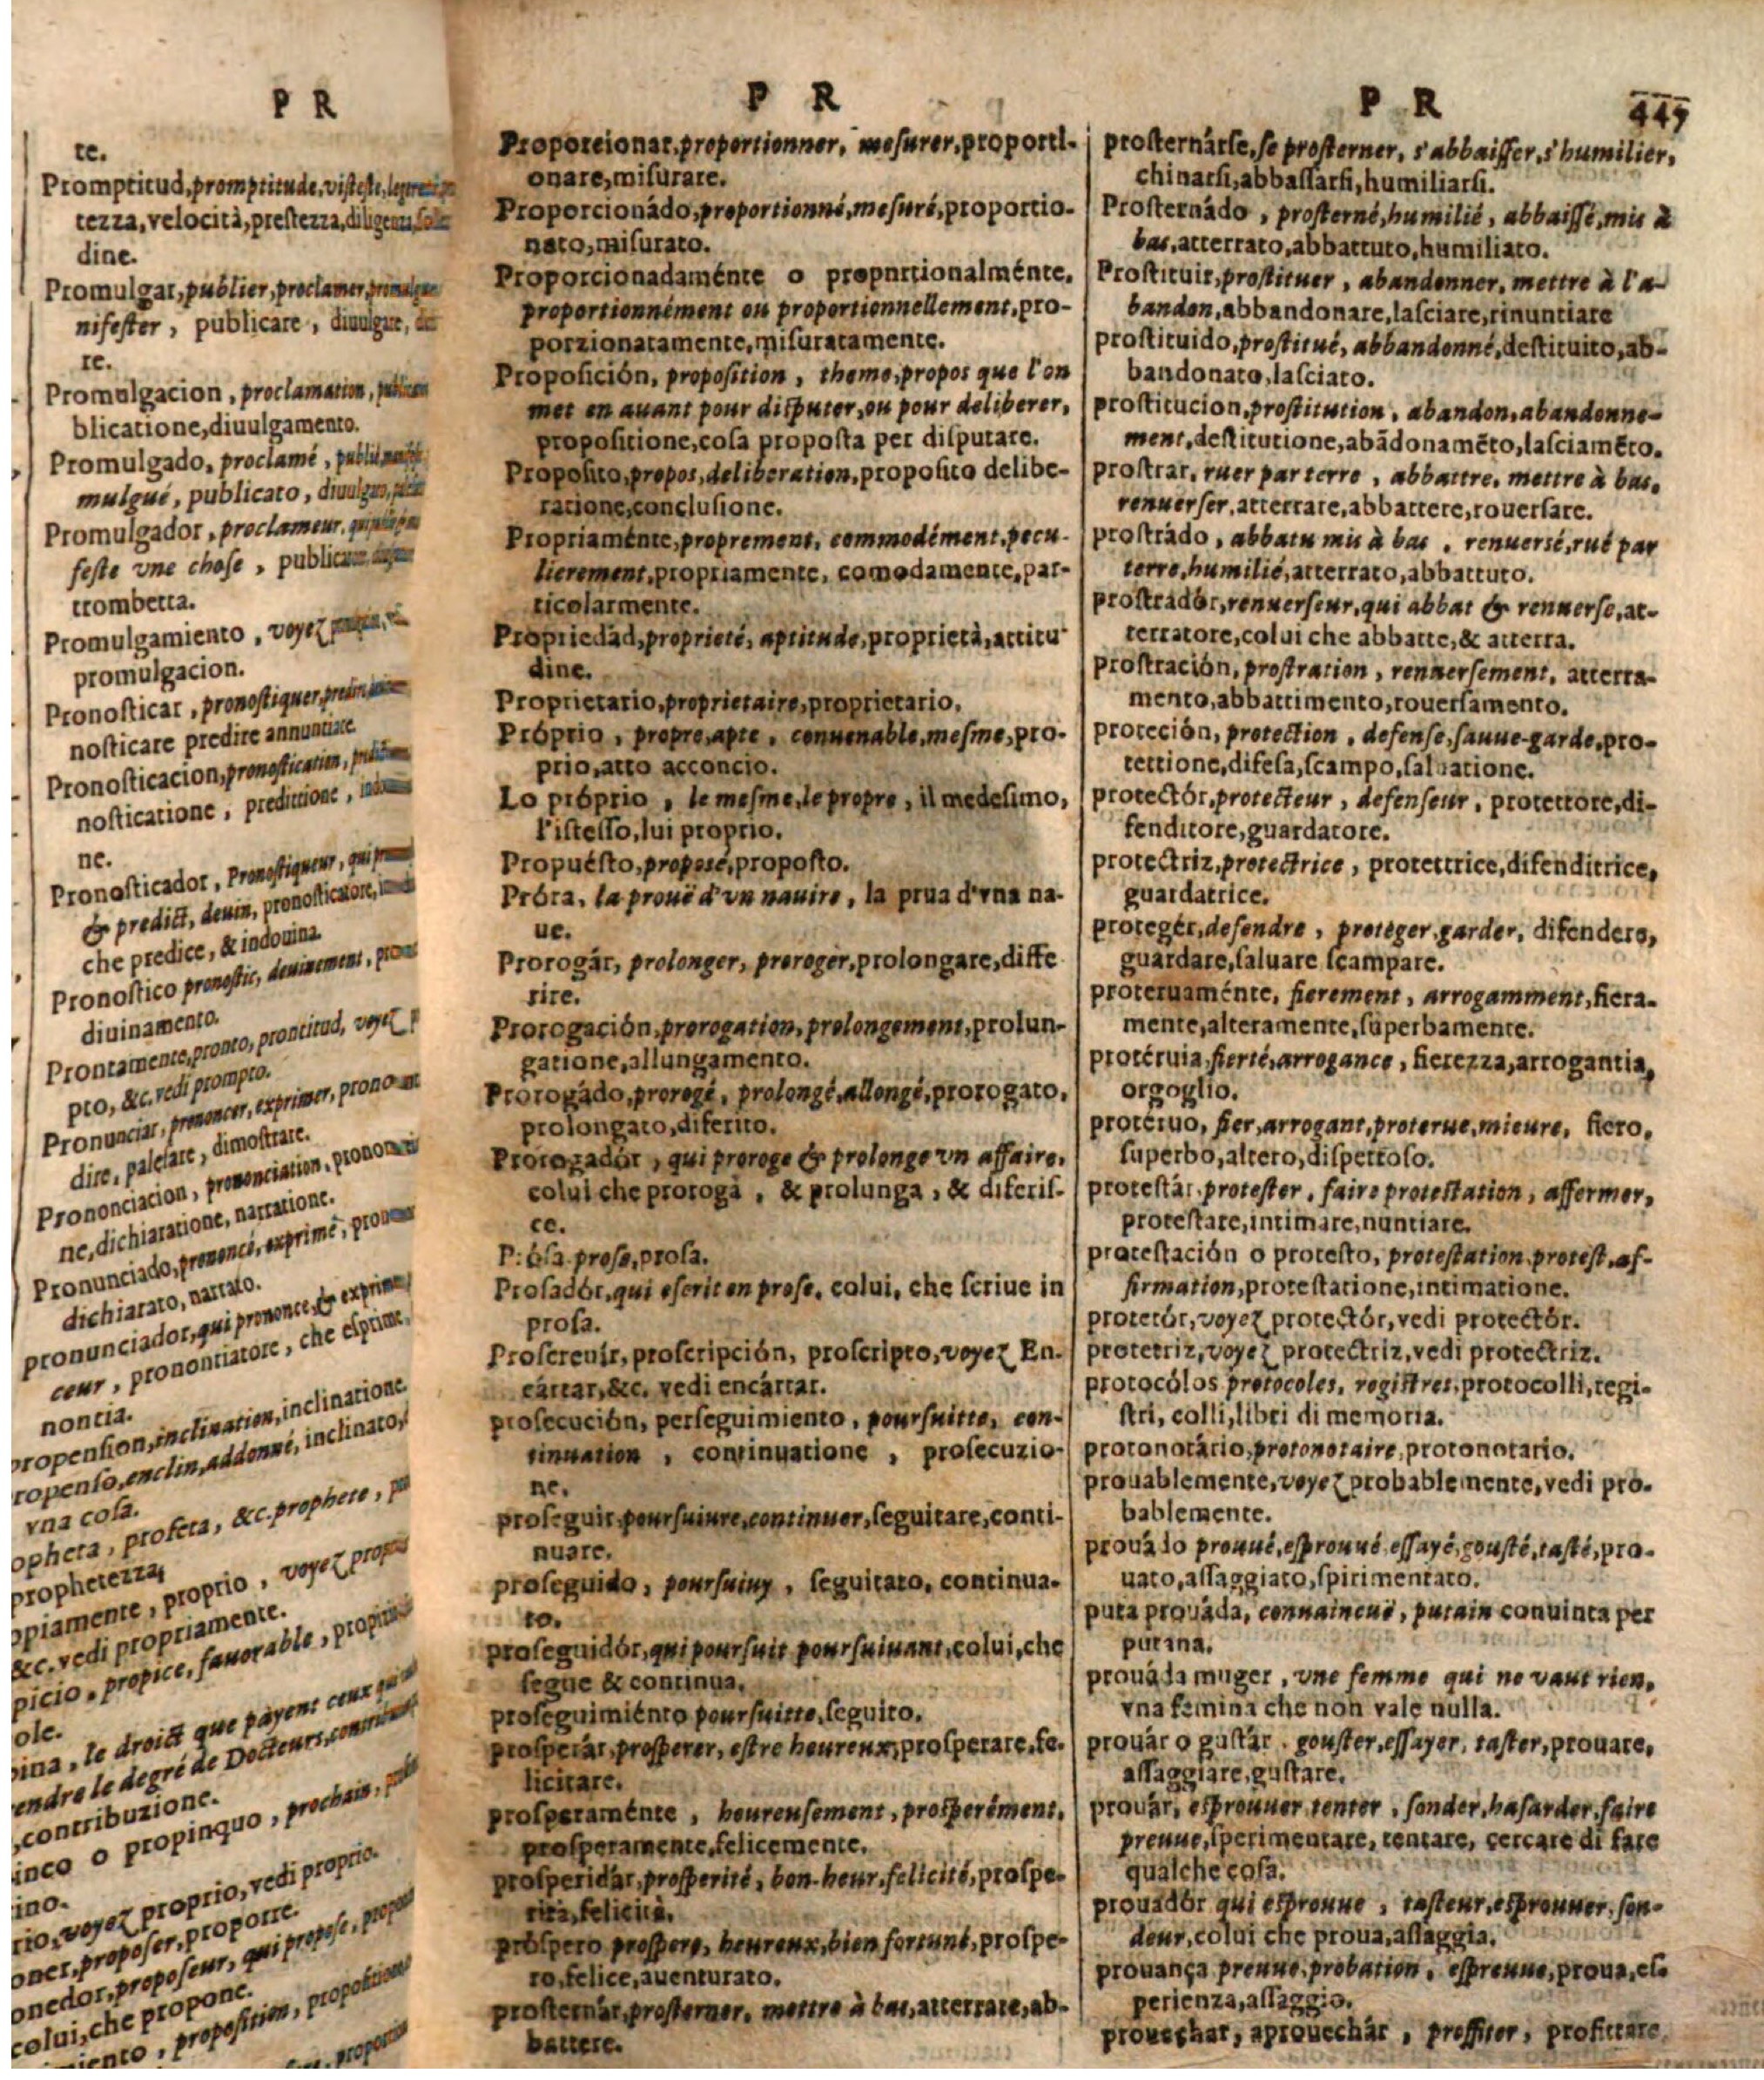 P R
te.
Promptitud,promptitude,visteste,
tezza,velocità,prestezza,diligenza,
dine.
Promulgar,publier,proclamer,
nifester, publicare, diuulgare,
re.
Promulgacion, proclamation,
blicatione,diuulgamento.
Promulgado, proclamé,
mulgué, publicato,
Promulgador, proclameur,
feste vne chose,
trombetta.
Promulgamiento, voyez
promulgacion.
Pronoſticar, pronoſtiquer,
noſticare predire annuntiare.
Pronoſticacion,pronoſtication,
noſticatione, predittione,
ne.
Pronoſticador, Pronoſtiqueur,
& predict, deuin, pronoſticatore,
che predice, & indouina.
Pronoſtico pronoſtic, deuinement,
diuinamento.
Prontamente,pronto,prontitud, voyez
pto, &c. vedi prompto.
Pronunciar, prononcer, exprimer,
dire, paleſare, dimoſtrare.
Prononciacion, prononciation,
ne,dichiaratione, narratione.
Pronunciado,prononcé,exprimé,
dichiarato, narrato.
pronunciador,qui prononce,& exprime,
ceur, prononciatore, che eſprime,
nontia.
propenſion,inclination,inclinatione.
ropenſo,enclin,addonné, inclinato,
vna coſa.
opheta, profeta, &c.prophete,
prophetezza,
opiamente, proprio, voyez
&c.vedi propriamente.
picio, propice, fauorable,
ole.
ina, le droict que payent ceux
endre le degré de Docteurs,
,contribuzione.
inco o propinquo, prochain,
ino.
rio,voyez proprio,vedi proprio.
oner,propoſer,proporre.
onedor,propoſeur, qui propoſe,
colui,che propone.
miento, propoſition,
P R
Proporcionar,proportionner, meſurer,proporti-
onare,miſurare.
Proporcionádo,proportionné,meſuré,proportio-
nato,miſurato.
Proporcionadaménte o propnrtionalménte,
proportionnément ou proportionnellement,pro-
porzionatamente,miſuratamente.
Propoſición, propoſition, theme,propos que l'on
met en auant pour diſputer,ou pour deliberer,
propoſitione,coſa propoſta per diſputare.
Propoſito,propos,deliberation,propoſito delibe-
ratione,concluſione.
Propriaménte,proprement, commodément,pecu-
lierement,propriamente, comodamente,par-
ticolarmente.
Propriedàd,proprieté, aptitude,proprietà,attitu
dine.
Proprietario,proprietaire,proprietario.
Próprio, propre,apte, conuenable,meſme,pro-
prio,atto acconcio.
Lo próprio, le meſme,le propre, il medeſimo,
l'iſteſſo,lui proprio.
Propuéſto,propoſé,propoſto.
Próra, la prouë d'vn nauire, la prua d'vna na-
ue.
Prorogár, prolonger, proroger,prolongare,diffe
rire.
Prorogación,prorogation, prolongement,prolun-
gatione,allungamento.
Prorogádo,prorogé, prolongé,allongé,prorogato,
prolongato,diferito.
Prorogadór, qui proroge & prolonge vn affaire,
colui che proroga, & prolunga, & diferiſ-
ce.
Próſa proſe,proſa.
Proſadór,qui eſcrit en proſe, colui, che ſcriue in
proſa.
Proſcreuír, proſcripción, proſcripto,voyez En-
cártar,&c. vedi encártar.
proſecución, perſeguimiento, pourſuitte, con-
tinuation, continuatione, proſecuzio-
ne.
proſeguir,pourſuiure,continuer,ſeguitare,conti-
nuare.
proſeguido, pourſuiuy, ſeguitato, continua-
to.
proſeguidór,qui pourſuit pourſuiuant,colui,che
ſegue & continua.
proſeguimiénto pourſuitte,ſeguito.
proſperár,proſperer, eſtre heureux,proſperare,fe-
licitare.
proſperaménte, heureuſement, proſperément,
proſperamente,felicemente.
proſperidár,proſperité, bon-heur,felicité,proſpe-
rità,felicità.
próſpero proſpere, heureux,bien fortuné,proſpe-
ro,felice,auenturato.
proſternár,proſterner, mettre à bas,atterrare,ab-
battere.
P R
447
proſternárſe,ſe proſterner, s'abbaiſſer,s'humilier,
chinarſi,abbaſſarſi,humiliarſi.
Proſternádo, proſterné,humilié, abbaiſſé,mis à
bas,atterrato,abbattuto,humiliato.
Proſtituir,proſtituer, abandonner, mettre à l'a-
bandon,abbandonare,laſciare,rinuntiare
proſtituido,proſtitué, abbandonné,deſtituito,ab-
bandonato,laſciato.
proſtitucion,proſtitution, abandon,abandonne-
ment,deſtitutione,abãdonamẽto,laſciamẽto.
proſtrar, ruer par terre, abbattre, mettre à bas,
renuerſer,atterrare,abbattere,rouerſare.
proſtrádo, abbatu mis à bas, renuerſé,rué par
terre,humilié,atterrato,abbattuto.
proſtradór,renuerſeur,qui abbat & renuerſe,at-
terratore,colui che abbatte,& atterra.
proſtración, proſtration, renuerſement, atterra-
mento,abbattimento,rouerſamento.
proteción, protection, defenſe,ſauue-garde,pro-
tettione,difeſa,ſcampo,ſaluatione.
protectór,protecteur, defenſeur, protettore,di-
fenditore,guardatore.
protectriz,protectrice, protettrice,difenditrice,
guardatrice.
protegér,defendre, proteger,garder, difendere,
guardare,ſaluare ſcampare.
proteruaménte, fierement, arrogamment,fiera-
mente,alteramente,ſuperbamente.
protéruia,fierté,arrogance, fierezza,arrogantia,
orgoglio.
protéruo, fier,arrogant,proterue,mieure, fiero,
ſuperbo,altero,diſpettoſo.
proteſtár,proteſter, faire proteſtation, affermer,
proteſtare,intimare,nuntiare.
proteſtación o proteſto, proteſtation,proteſt,af-
firmation,proteſtatione,intimatione.
protetór,voyez protectór,vedi protectór.
protetriz,voyez protectriz,vedi protectriz.
protocólos protocoles, regiſtres,protocolli,regi-
ſtri, colli,libri di memoria.
protonotàrio,protonotaire,protonotario.
prouablemente,voyez probablemente,vedi pro-
bablemente.
prouádo prouué,eſprouué,eſſayé,gouſté,taſté,pro-
uato,aſſaggiato,ſpirimentato.
puta prouáda, conuaincuë, putain conuinta per
putana.
prouáda muger, vne femme qui ne vaut rien,
vna femina che non vale nulla.
prouár o guſtár, gouſter,eſſayer, taſter,prouare,
aſſaggiare,guſtare.
prouár, eſprouuer tenter, ſonder,haſarder,faire
preuue,ſperimentare, tentare, cercare di fare
qualche coſa.
prouadór qui eſprouue, taſteur,eſprouuer,ſon-
deur,colui che proua,aſſaggia.
prouança preuue,probation, eſpreuue,proua,eſ-
perienza,aſſaggio.
prouechar, aprouechár, proffiter, profittare